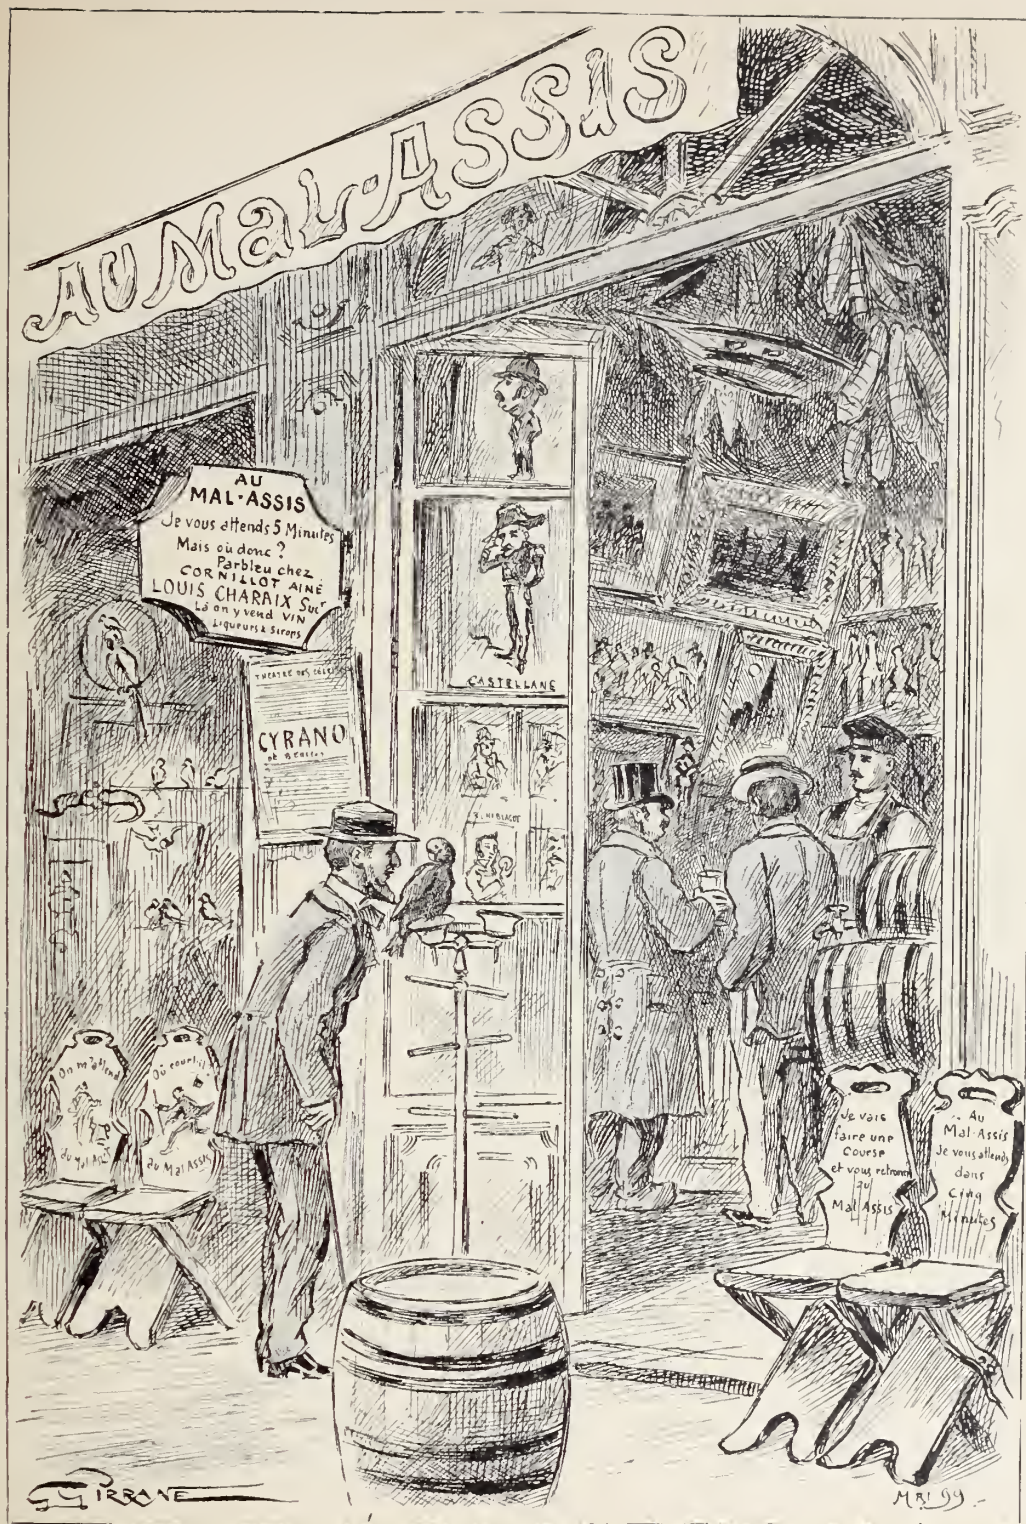 AU MaL-ASSIS
AU
MAL-ASSIS
Je vous attends 5 Minutes
Mais où donc ?
Parbleu chez
CORNILLOT AINÉ
LOUIS CHARAIX Sucr
Là on y vend VIN
Liqueurs & Sirops
THEATRE DES
CYRANO
DE
CASTELLANE
On m'attend
au Mal Assis
Où court-il
au Mal Assis
Je vais
faire une
Course
et vous retrouve
au
Mal Assis
Au
Mal-Assis
Je vous attends
dans
Cinq
Minutes
GIRRANE
99